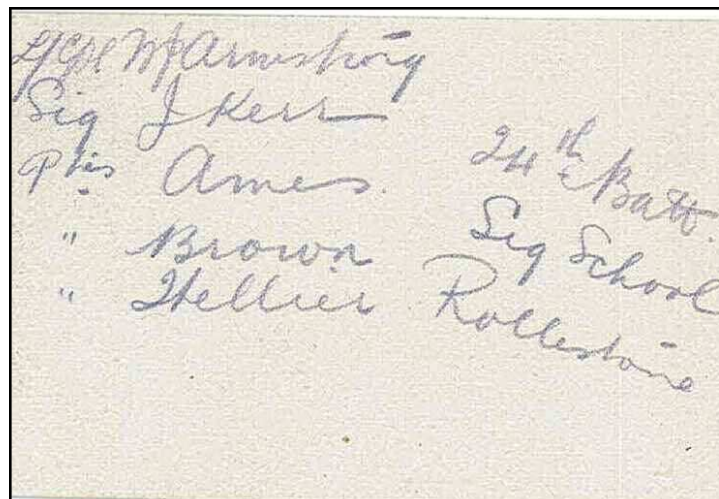 L/Cpl W J Armstrong
Sig J Kerr
Ptes Ames.
" Brown
" Hellier
24th Batt.
Sig School
Rollestone